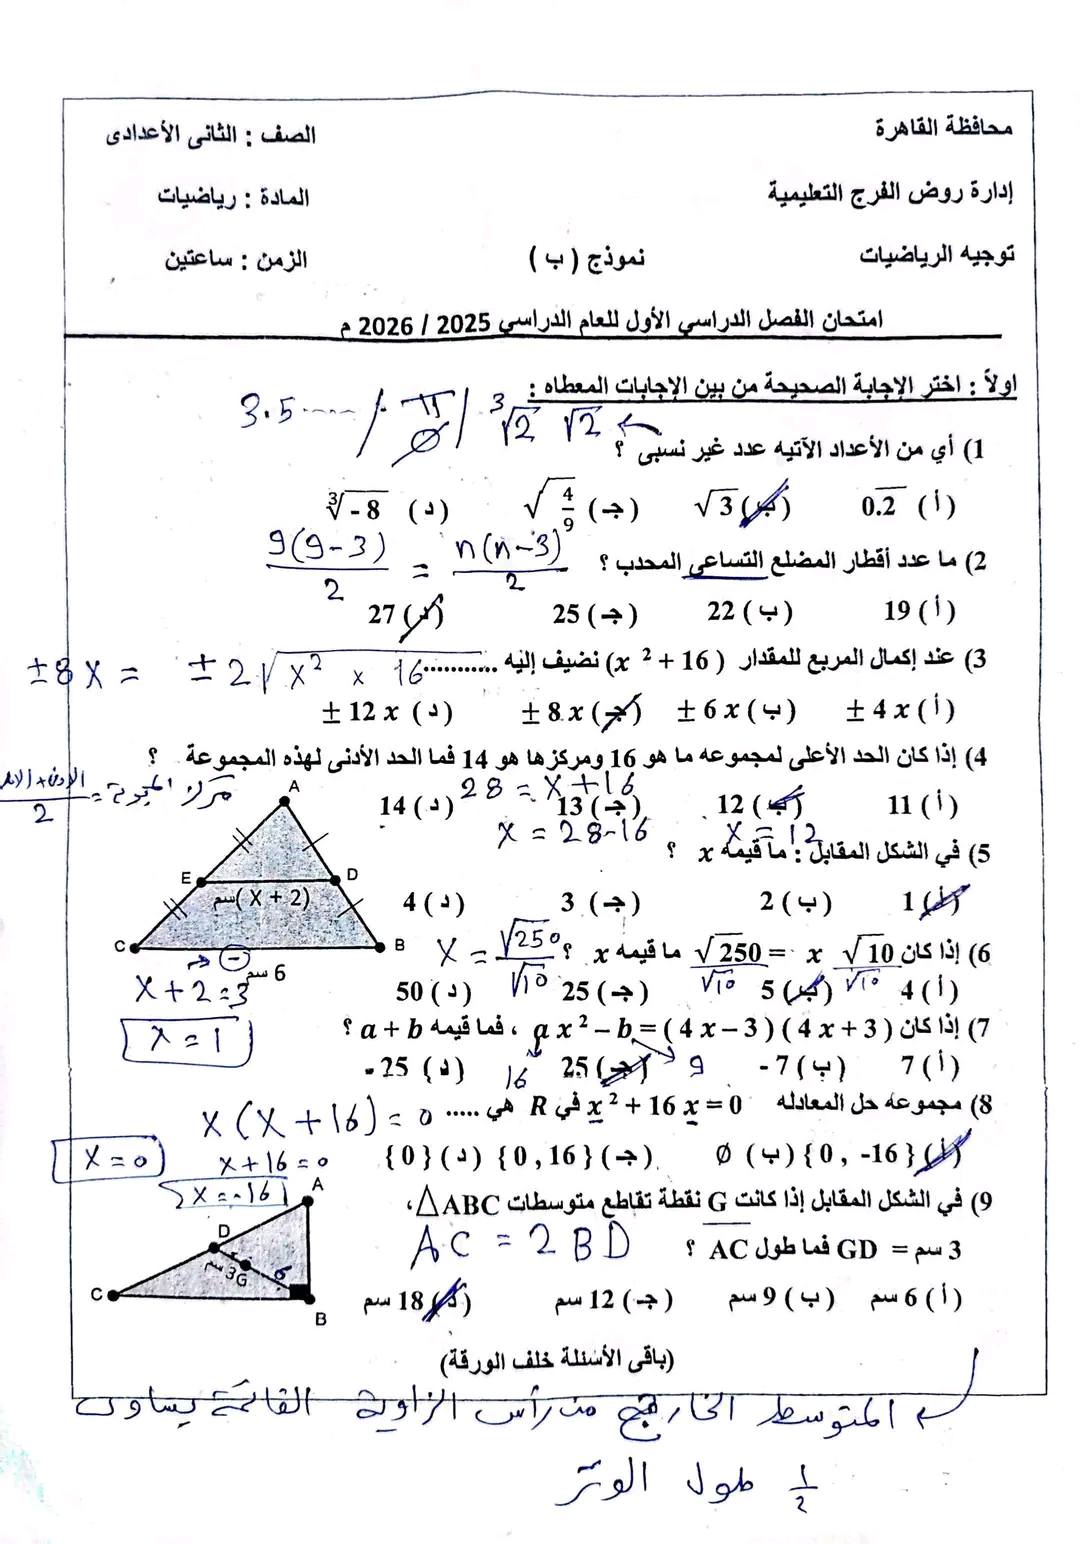 محافظة القاهرة
الصف : الثانى الأعدادى
إدارة روض الفرج التعليمية
المادة : رياضيات
توجيه الرياضيات
نموذج ( ب )
الزمن : ساعتين
امتحان الفصل الدراسي الأول للعام الدراسي 2025 / 2026 م
اولاً : اختر الإجابة الصحيحة من بين الإجابات المعطاه :
3.5 ---- / π / ∛2 √2 ←
1) أي من الأعداد الآتيه عدد غير نسبى ؟
(أ) 0.2̅ (ب) √3 (جـ) √4/9 (د) ∛-8
2) ما عدد أقطار المضلع التساعى المحدب ؟
9(9-3)/2 = n(n-3)/2
(أ) 19 (ب) 22 (جـ) 25 (د) 27
3) عند إكمال المربع للمقدار (x² + 16) نضيف إليه ...........
±8x = ±2√x² × 16
(أ) ± 4 x (ب) ± 6 x (جـ) ± 8 x (د) ± 12 x
4) إذا كان الحد الأعلى لمجموعه ما هو 16 ومركزها هو 14 فما الحد الأدنى لهذه المجموعة ؟
28 = x + 16
(أ) 11 (ب) 12 (جـ) 13 (د) 14
x = 28-16
x = 12
5) في الشكل المقابل : ما قيمه x ؟
A
E
D
سم(X + 2)
C
B
6 سم
(أ) 1 (ب) 2 (جـ) 3 (د) 4
x + 2 = 3
x = 1
6) إذا كان √10 x = √250 ما قيمه x ؟
x = √250/√10
√10 √10 √10
(أ) 4 (ب) 5 (جـ) 25 (د) 50
7) إذا كان a x² – b = ( 4 x – 3 ) ( 4 x + 3 ) ، فما قيمه a + b ؟
16
9
(أ) 7 (ب) 7 - (جـ) 25 (د) 25 -
8) مجموعه حل المعادله x² + 16 x = 0 في R هي .....
x(x+16) = 0
(أ) {0 , -16} (ب) Ø (جـ) {0 , 16} (د) {0}
x = 0
x+16 = 0
x = -16
9) في الشكل المقابل إذا كانت G نقطة تقاطع متوسطات △ABC،
GD = 3 سم فما طول AC ؟
AC = 2BD
A
D
3سم
G
6
C
B
(أ) 6 سم (ب) 9 سم (جـ) 12 سم (د) 18 سم
(باقى الأسئلة خلف الورقة)
المتوسط الخارج من رأس الزاوية القائمة يساوى
1/2 طول الوتر